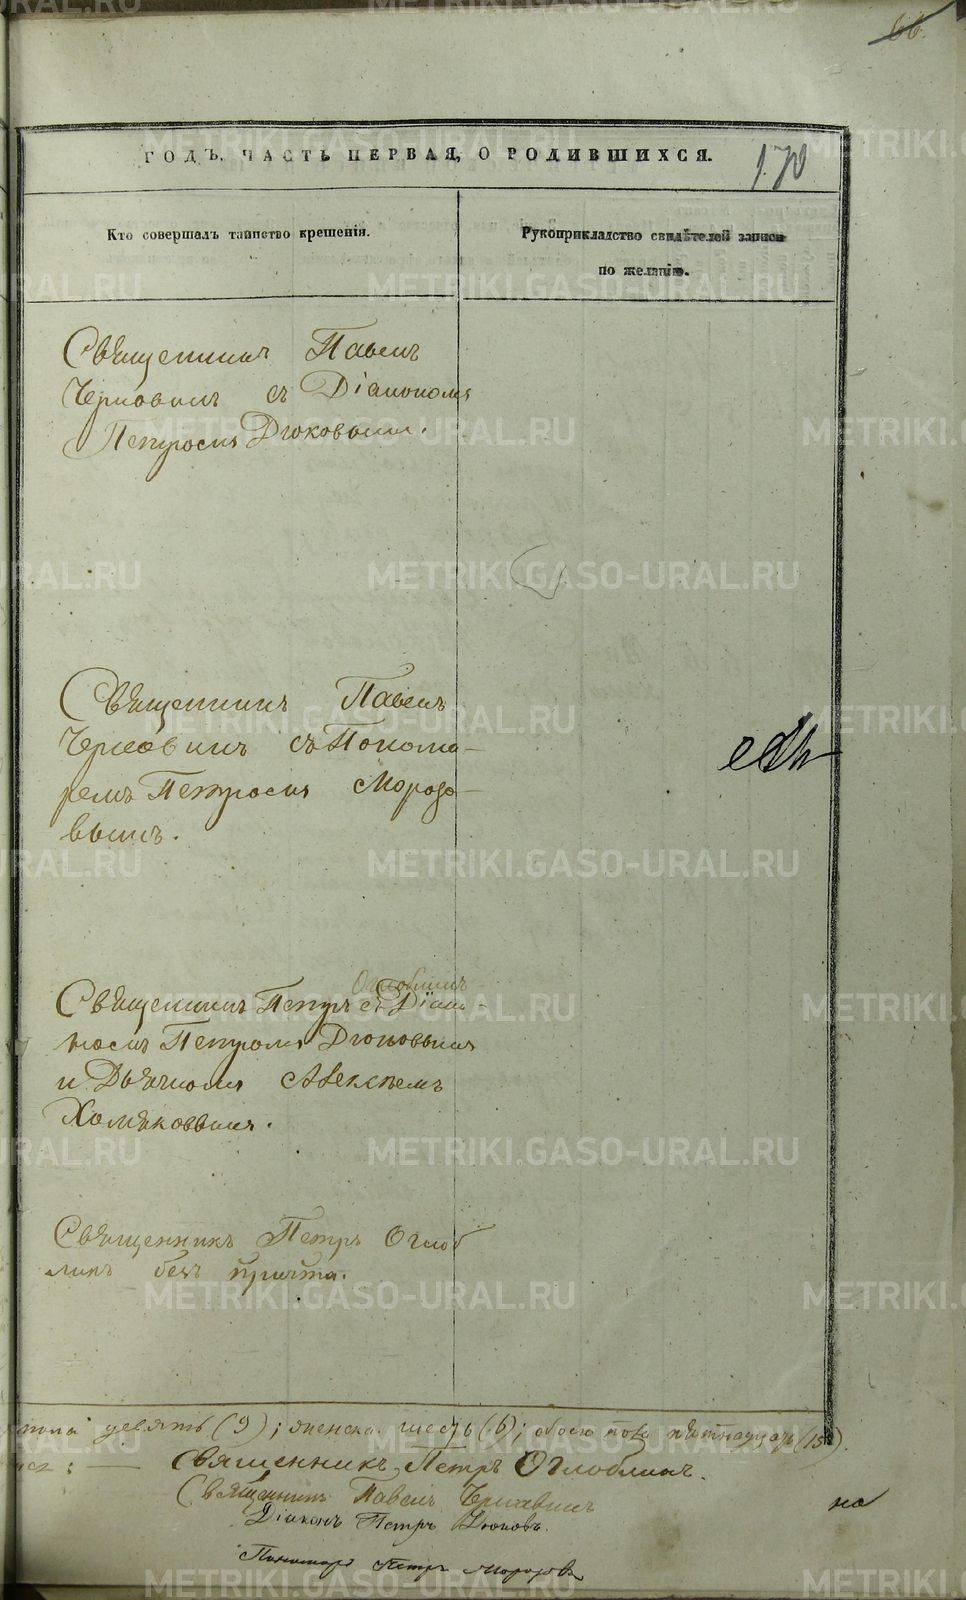 66.
ГОДЪ. ЧАСТЬ ПЕРВАЯ, О РОДИВШИХСЯ.
170
Кто совершалъ таинство крещенія.
Рукоприкладство свидѣтелей записи
по желанію.
Священникъ Павелъ
съ Діакономъ
Петромъ Дюковымъ.
Священникъ Павелъ
съ Понома-
ремъ Петромъ Морозо-
вымъ.
Оглоблинъ
Священникъ Петръ съ Діако-
номъ Петромъ Дюковымъ
и Дьячкомъ Алексѣемъ
Хомяковымъ.
Священникъ Петръ Оглоб
линъ безъ причта.
пола девять (9); женска. шесть (6); обоего пола пятнадцать (15).
Священникъ Петръ Оглоблинъ.
Священникъ Павелъ
Діаконъ Петръ Дюковъ.
Пономарь Петръ Морозовъ
но
METRIKI.GASO-URAL.RU